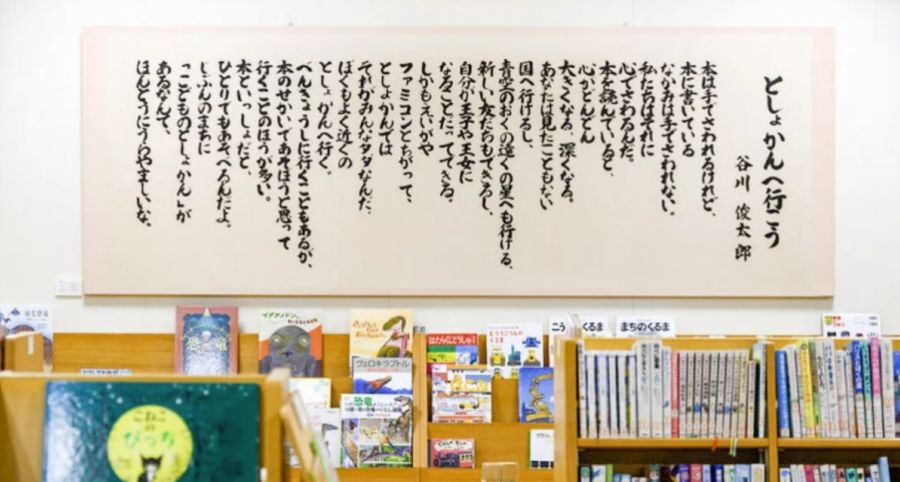 としょかんへ行こう
谷川 俊太郎
本は手でさわれるけれど、
本に書いている
なかみは手でさわれない。
私たちはそれに
心でさわるんだ。
本を読んでいると、
心がどんどん
大きくなる、深くなる。
あなたは見たこともない
国へ行けるし、
青空のおくの遠くの星へも行ける、
新しい友だちもできるし、
自分が王子や王女に
なることだってできる。
しかもえいがや
ファミコンとちがって、
としょかんでは
それがみんなタダなんだ。
ぼくもよく近くの
としょかんへ行く。
べんきょうしに行くこともあるが、
本のせかいであそぼうと思って
行くことのほうが多い。
本といっしょだと、
ひとりでもあそべるんだよ。
じぶんのまちに
「こどものとしょかん」が
あるなんて、
ほんとうにうらやましいな。
恐竜
イグアノドン
ヴェロキラプトル
はたらくじどうしゃ
どうろこうじの
くるま
くるま
まちのくるま
恐竜
こねこ
の
ぴっち